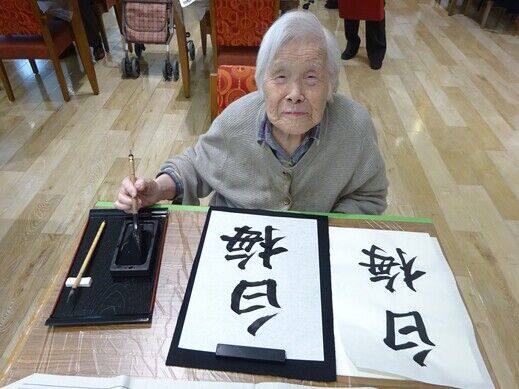 白梅
白梅